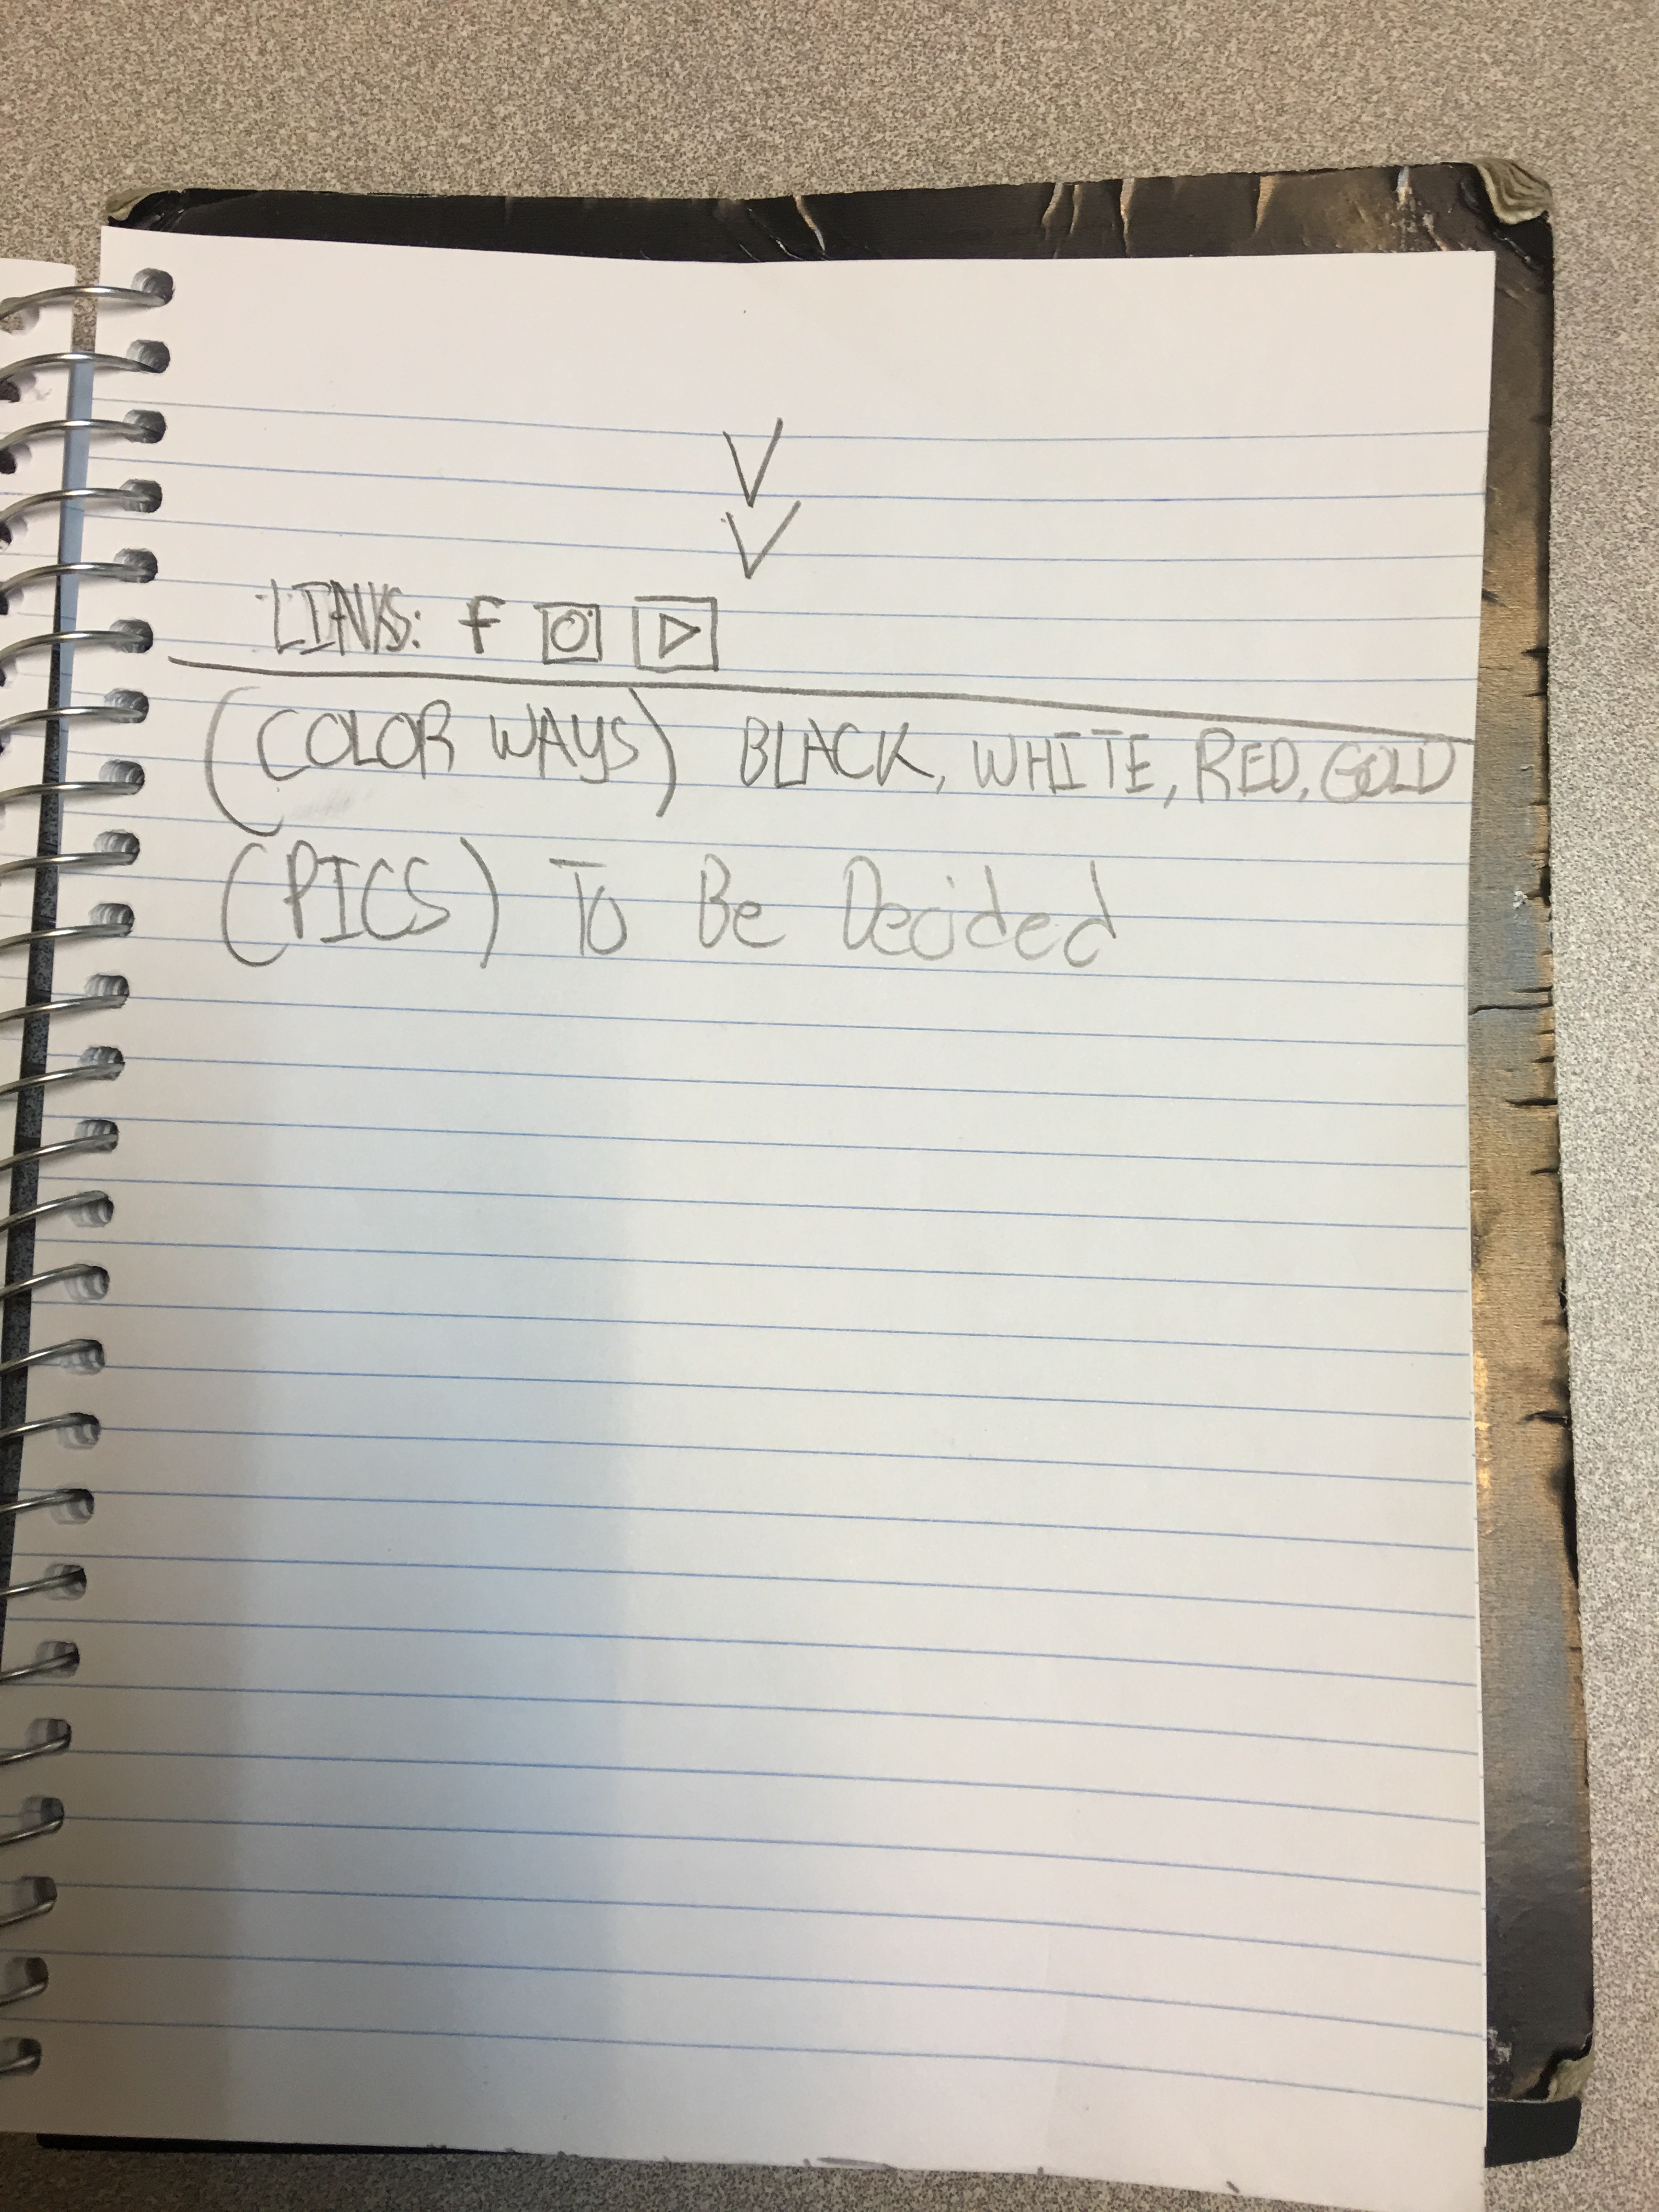 V
V
LINKS: f
(COLOR WAYS) BLACK, WHITE, RED, GOLD
(PICS) To Be Decided